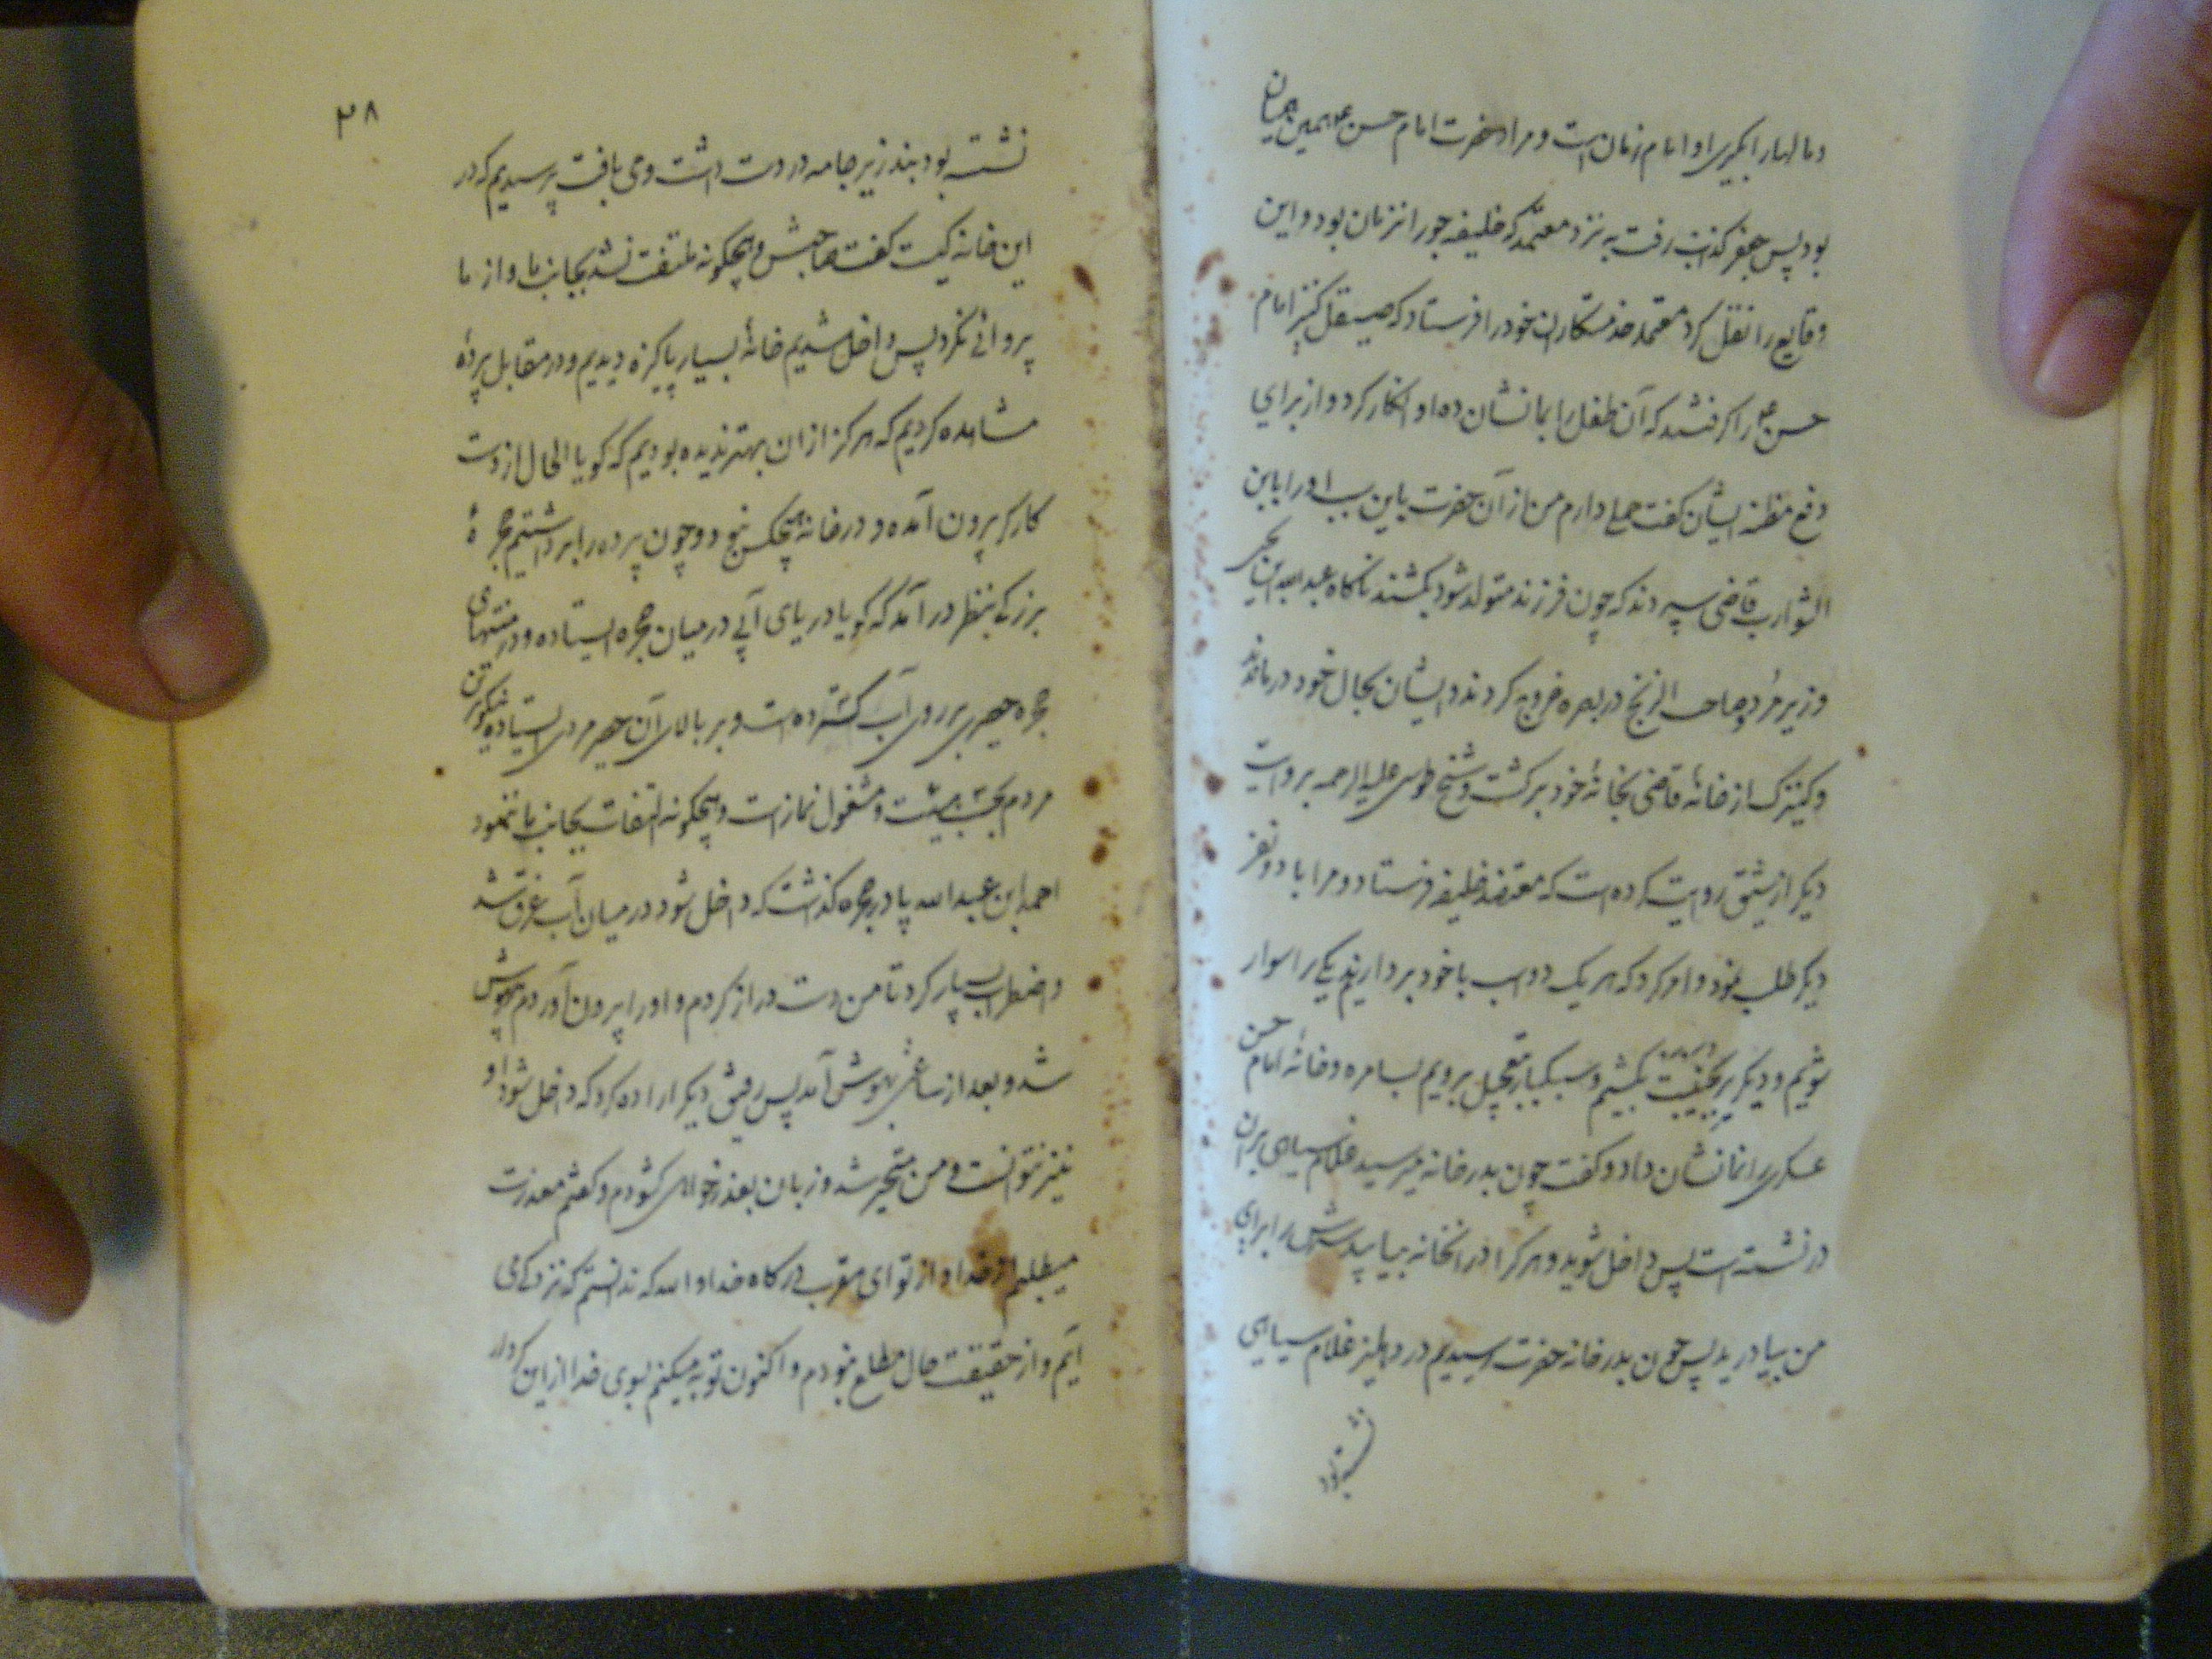 و مالها را بگیری او امام زمان است و مراد حضرت امام حسن ع همین همیان
بود پس جعفر کذاب رفت به نزد معتمد که خلیفه جور انزمان بود و این
وقایع را نقل کرد معتمد خدمتکاران خود را فرستاد که صیقل کنیز امام
حسن ع را گرفتند که آن طفل را بما نشان ده او انکار کرد و از برای
دفع مظنه ایشان گفت حملی دارم من از آن حضرت باین سبب او را بابن
الشوارب قاضی سپردند که چون فرزند متولد شود بکشند ناگاه عبدالله ابن یحیی
وزیر مُرد و صاحب الزنج در بصره خروج کردند و ایشان بحال خود درماندند
و کنیزک از خانهٔ قاضی بخانهٔ خود برگشت و شیخ طوسی علیه الرحمه بروایت
دیگر از رشیق روایت کرده است که معتضد خلیفه فرستاد و مرا با دو نفر
دیگر طلب نمود و امر کرد که هر یک دو اسب با خود برداریم یکی را سوار
شویم و دیگر بکشیم و سبکبار بتعجیل برویم بسامره و خانهٔ امام حسن
عسکری را بما نشان داد و گفت چون بدر خانه میرسید غلام سیاهی بر آن
در نشسته است پس داخل شوید و هر که را در آنخانه بیابید سرش را برای
من بیاورید پس چون بدر خانه حضرت رسیدیم در دهلیز غلام سیاهی
نشسته بود
۲۸
نشسته بود بند زیر جامه در دست داشت و می بافت پرسیدیم که در
این خانه کیست گفت صاحبش و هیچگونه ملتفت نشد بجانب ما و از ما
پروائی نکرد پس داخل شدیم خانهٔ بسیار پاکیزه دیدیم و در مقابل پردهٔ
مشاهده کردیم که هرگز از ان بهتر ندیده بودیم که گویا الحال از دست
کارگر بیرون آمده و در خانه هیچکس نبود و چون پرده را برداشتیم حجرهٔ
بزرگی بنظر در آمد که گویا دریای آبی در میان حجره ایستاده و در منتهای
حجره حصیری بر روی آب گسترده است و بر بالای آن حصیر مردی ایستاده نیکوترین
مردم بحسب هیئت و مشغول نماز است و هیچگونه التفات بجانب ما ننمود
احمد ابن عبدالله پا در حجره گذاشت که داخل شود در میان آب غرق شد
و اضطراب بسیار کرد تا من دست دراز کردم و او را بیرون آوردم بیهوش
شد و بعد از ساعتی بهوش آمد پس رفیق دیگر اراده کرد که داخل شود او
نیز نتوانست و من متحیر شد و زبان بعذرخواهی گشودم و گفتم معذرت
میطلبم از خدا و از تو ای مقرب درگاه خدا والله که ندانستم که نزد که می
آیم و از حقیقت حال مطلع نبودم و اکنون توبه میکنم بسوی خدا از این کردار